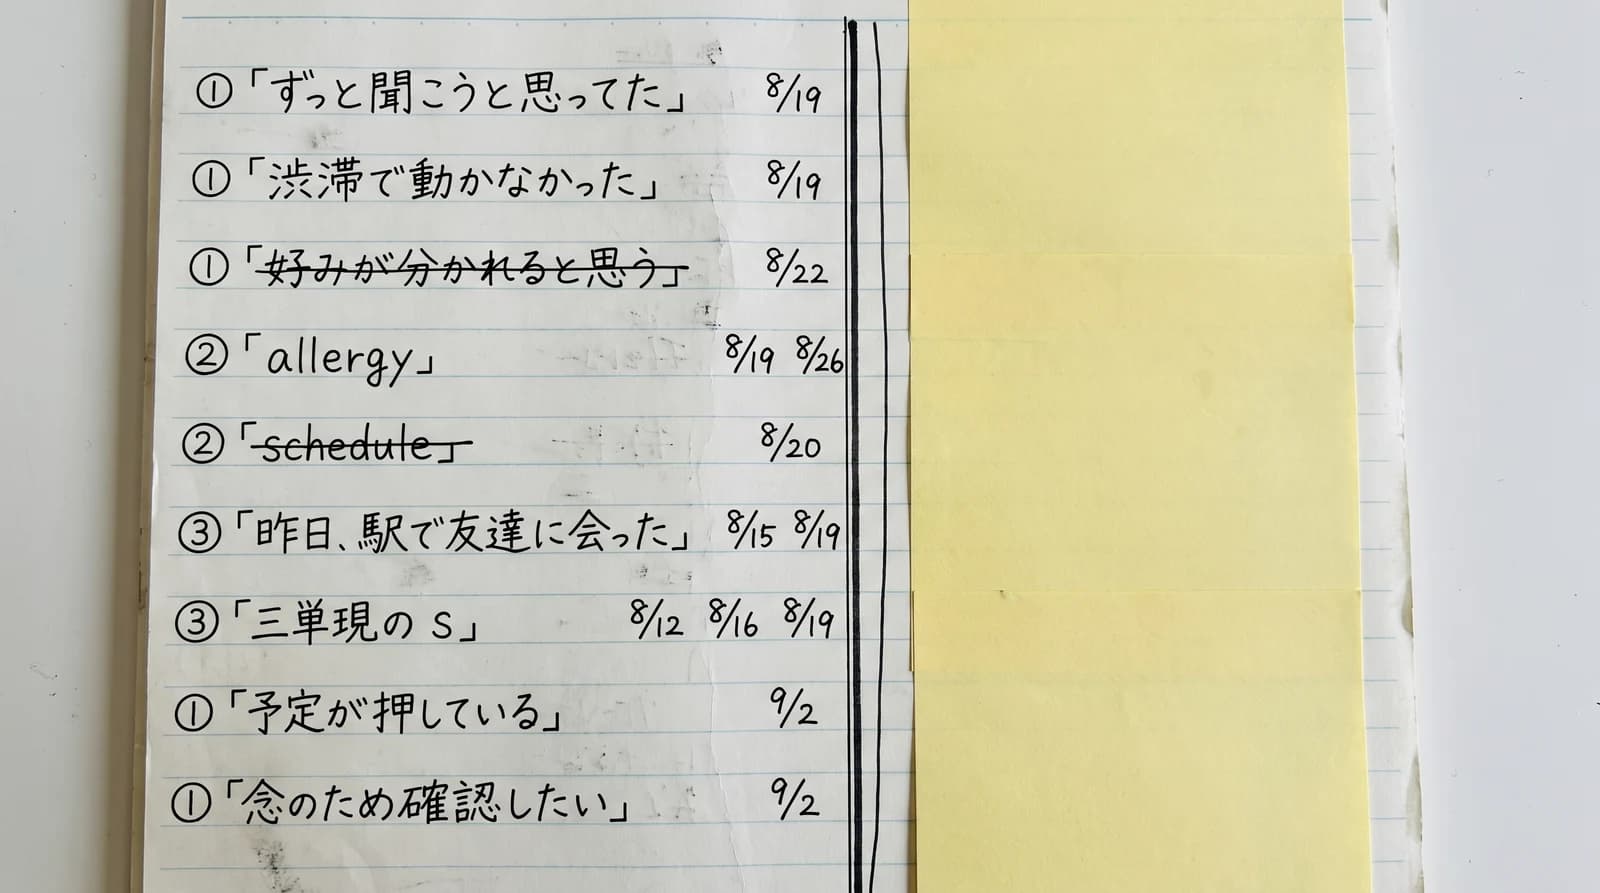 ①「ずっと聞こうと思ってた」 8/19
①「渋滞で動かなかった」 8/19
①「好みが分かれると思う」 8/22
②「allergy」 8/19 8/26
②「schedule」 8/20
③「昨日、駅で友達に会った」 8/15 8/19
③「三単現のS」 8/12 8/16 8/19
①「予定が押している」 9/2
①「念のため確認したい」 9/2